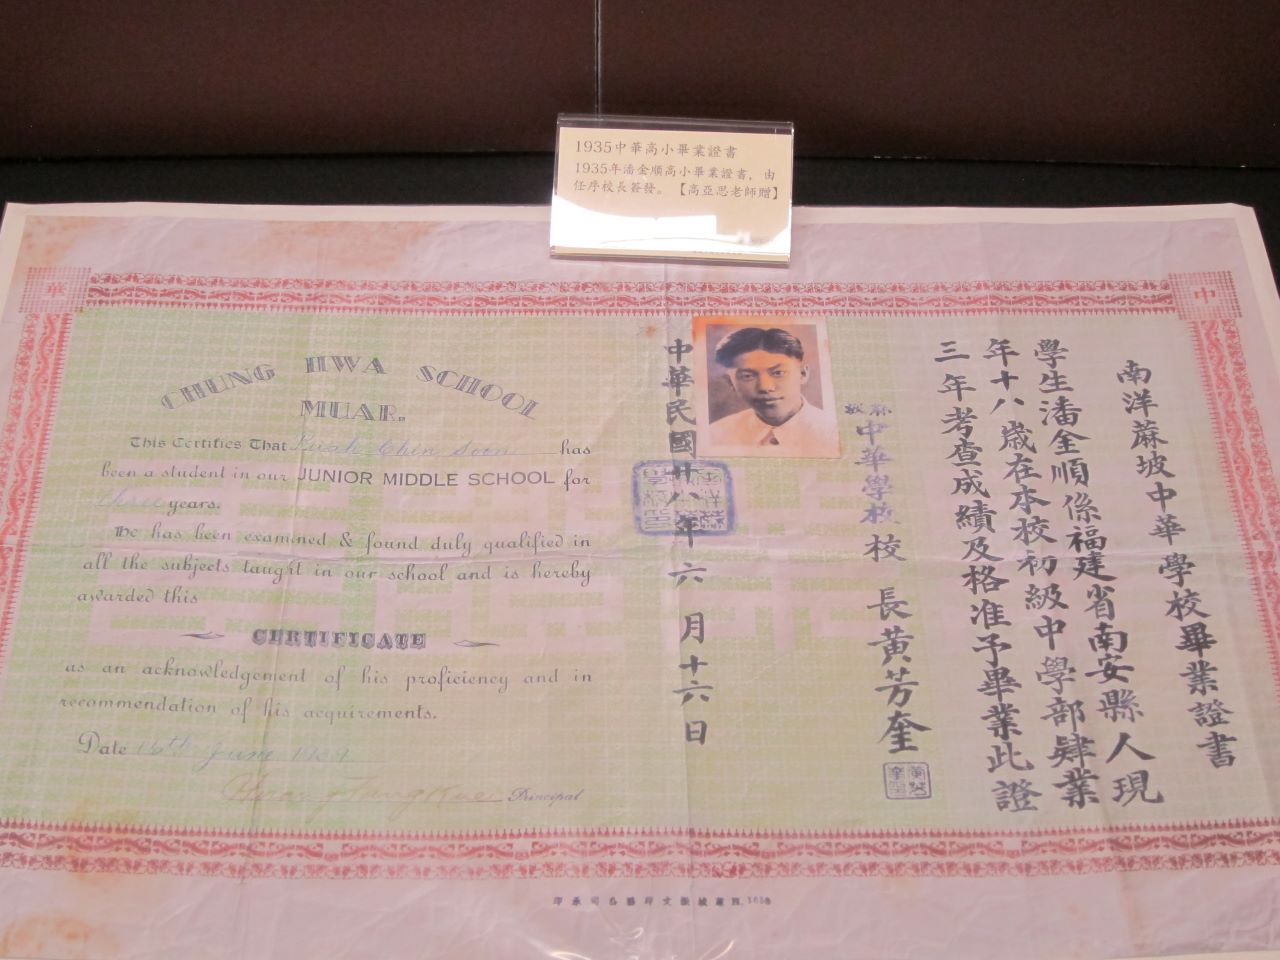 1935中華高小畢業證書
1935年潘金順高小畢業證書，由
任序校長簽發。【高亞思老師贈】
華
中
CHUNG HWA SCHOOL
MUAR.
This Certifies That Puah Chin Soon has
been a student in our JUNIOR MIDDLE SCHOOL for
three years.
He has been examined & found duly qualified in
all the subjects taught in our school and is hereby
awarded this
CERTIFICATE
as an acknowledgement of his proficiency and in
recommendation of his acquirements.
Date 16th June 1939
Principal
南洋蔴坡中華學校畢業證書
學生潘金順係福建省南安縣人現
年十八歲在本校初級中學部肄業
三年考查成績及格准予畢業此證
蔴坡中華學校校長黃芳奎
中華民國廿八年六月十六日